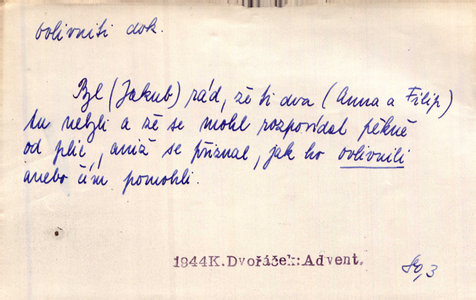 ovlivniti dok.
Byl (Jakub) rád, že ti dva (Anna a Filip)
tu nebyli a že se mohl rozpovídat pěkně
od plic, aniž se přiznal, jak ho ovlivnili
anebo čím pomohli.
1944K.Dvořáček:Advent.
80,3